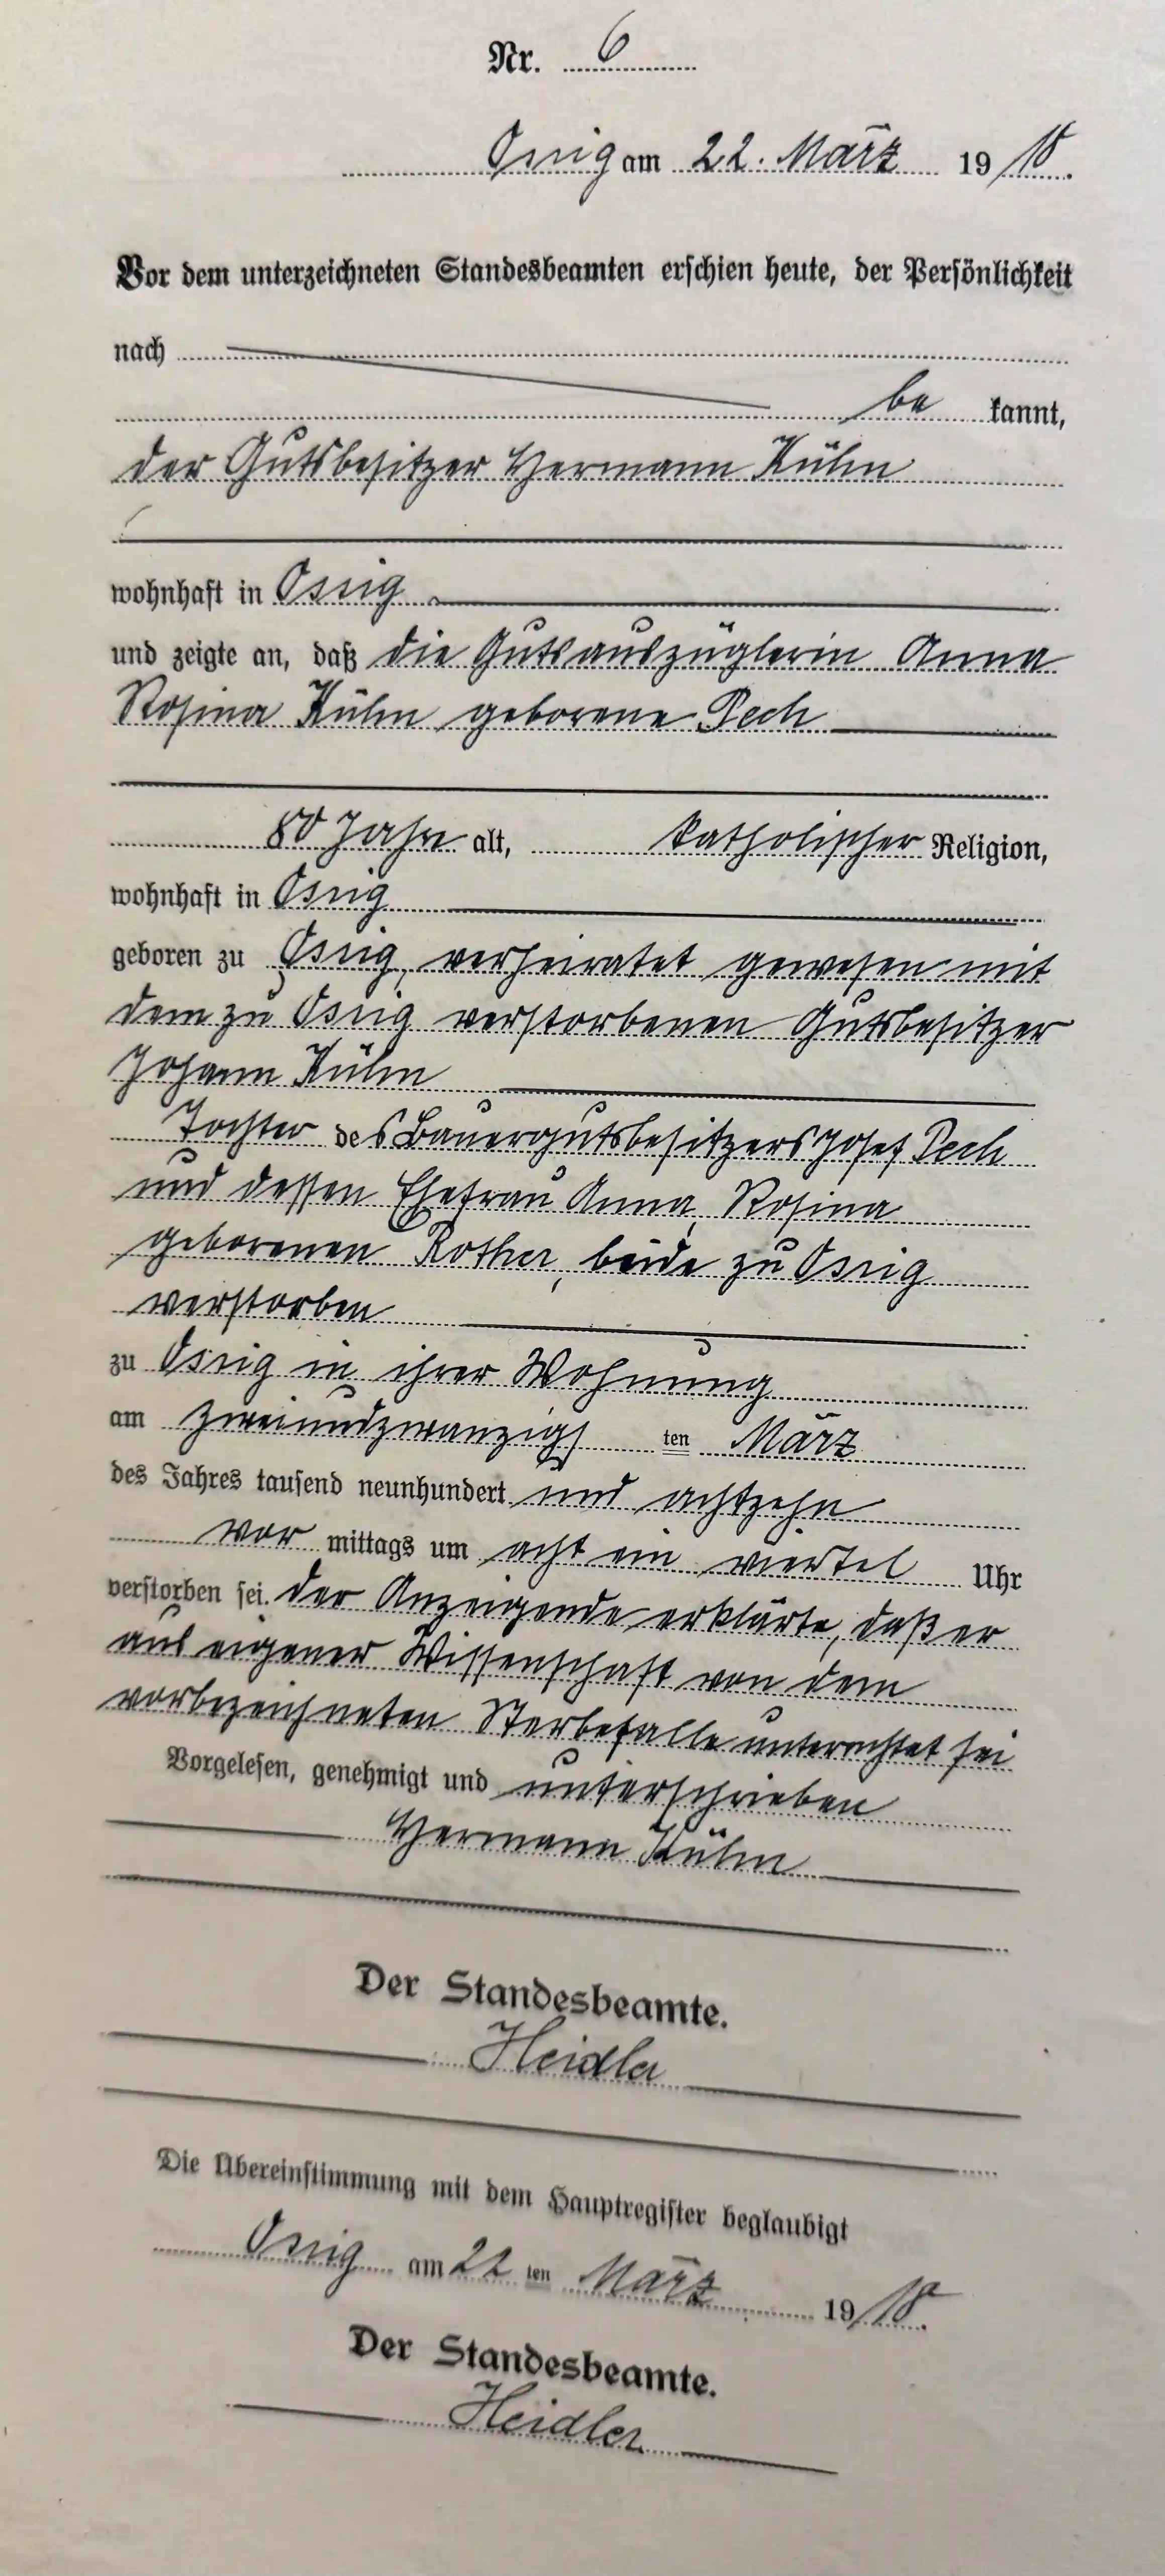 Nr. 6
Ossig am 22. März 1918.
Vor dem unterzeichneten Standesbeamten erschien heute, der Persönlichkeit
nach
be kannt,
der Gutsbesitzer Hermann Kühn
wohnhaft in Ossig
und zeigte an, daß die Gutsauszüglerin Anna
Rosina Kühn geborene Pech
80 Jahre alt, katholischer Religion,
wohnhaft in Ossig
geboren zu Ossig, verheiratet gewesen mit
dem zu Ossig verstorbenen Gutsbesitzer
Johann Kühn
Tochter des Bauergutsbesitzers Josef Pech
und dessen Ehefrau Anna Rosina
geborenen Rother, beide zu Ossig
verstorben
zu Ossig in ihrer Wohnung
am zweiundzwanzigsten März
des Jahres tausend neunhundert und achtzehn
vor mittags um acht ein viertel Uhr
verstorben sei. Der Anzeigende erklärte, daß er
aus eigener Wissenschaft von dem
vorbezeichneten Sterbefalle unterrichtet sei
Vorgelesen, genehmigt und unterschrieben
Hermann Kühn
Der Standesbeamte.
Heidler
Die Übereinstimmung mit dem Hauptregister beglaubigt
Ossig am 22 ten März 1918.
Der Standesbeamte.
Heidler